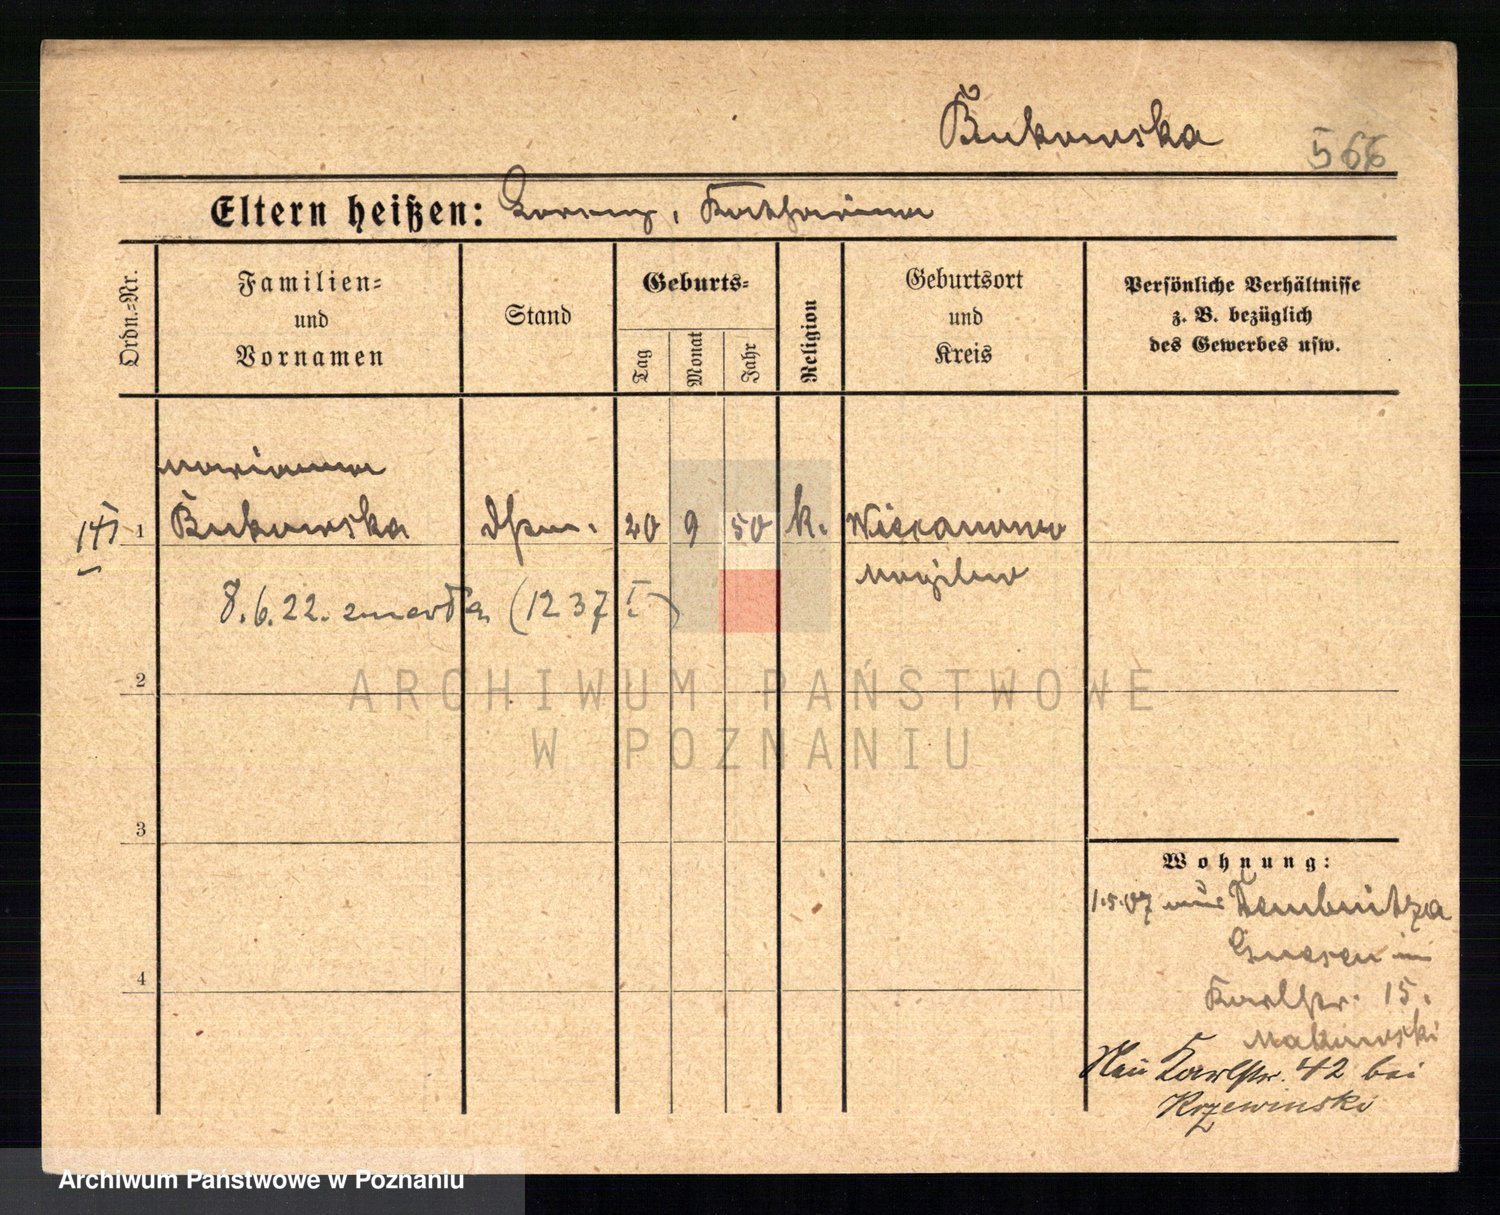 Bukowska 566
Eltern heißen: Lorenz, Katharina
Ordn.=Nr.
Familien=
und
Vornamen
Stand
Geburts=
Tag
Monat
Jahr
Religion
Geburtsort
und
Kreis
Persönliche Verhältnisse
z. B. bezüglich
des Gewerbes usw.
Marianna
1 Bukowska 20 9 50 k. Wiecanowo
Mogilno
8.6.22. zmarła (1237 I)
2
3
4
Wohnung:
1.5.07 aus
Gnesen
Karlstr. 15.
Neu Karlstr. 42 bei
Krzewinski
ARCHIWUM PAŃSTWOWE
W POZNANIU
Archiwum Państwowe w Poznaniu